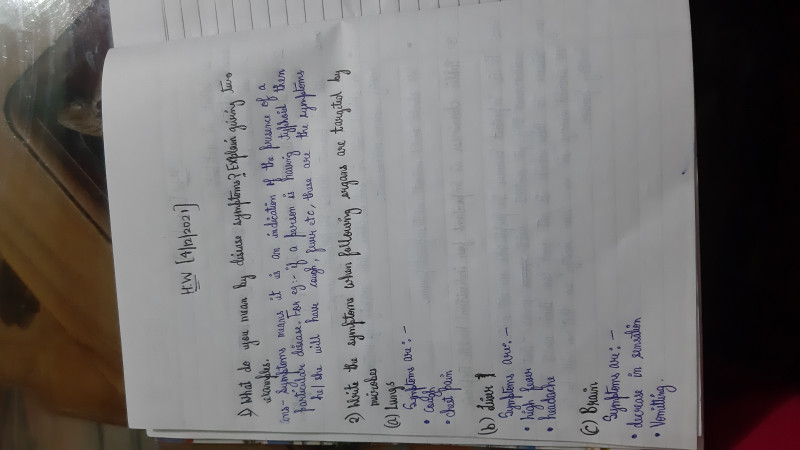 HW [4/12/2021]
1) What do you mean by disease symptoms? Explain giving two
examples.
ans- Symptoms means it is an indication of the presence of a
particular disease. For eg:- if a person is having typhoid then
he/she will have cough, fever etc, these are the symptoms
2) Write the symptoms when following organs are targeted by
microbes
(a) Lungs
Symptoms are:-
• Cough
• chest pain
(b) Liver
Symptoms are:-
• high fever
• headache
(c) Brain
Symptoms are:-
• decrease in sensation
• Vomitting.